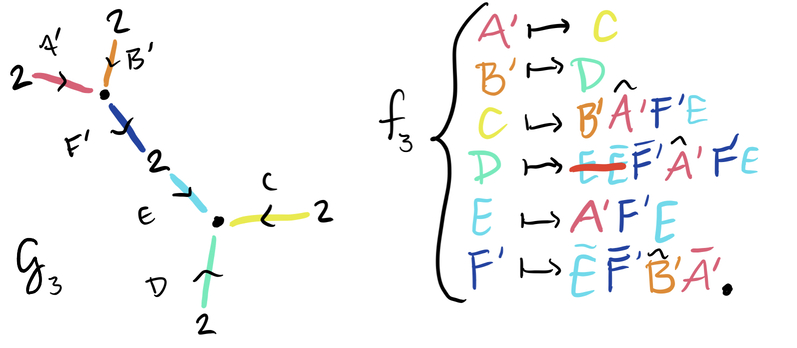 2
A′
B′
2
F′
2
E
C
2
D
2
G₃
f₃
A′ ↦ C
B′ ↦ D
C ↦ B′Â′F′E
D ↦ E E̅ F̅′Â′F′E
E ↦ A′F′E
F′ ↦ E̅ F̅′ B̂′ A̅′.